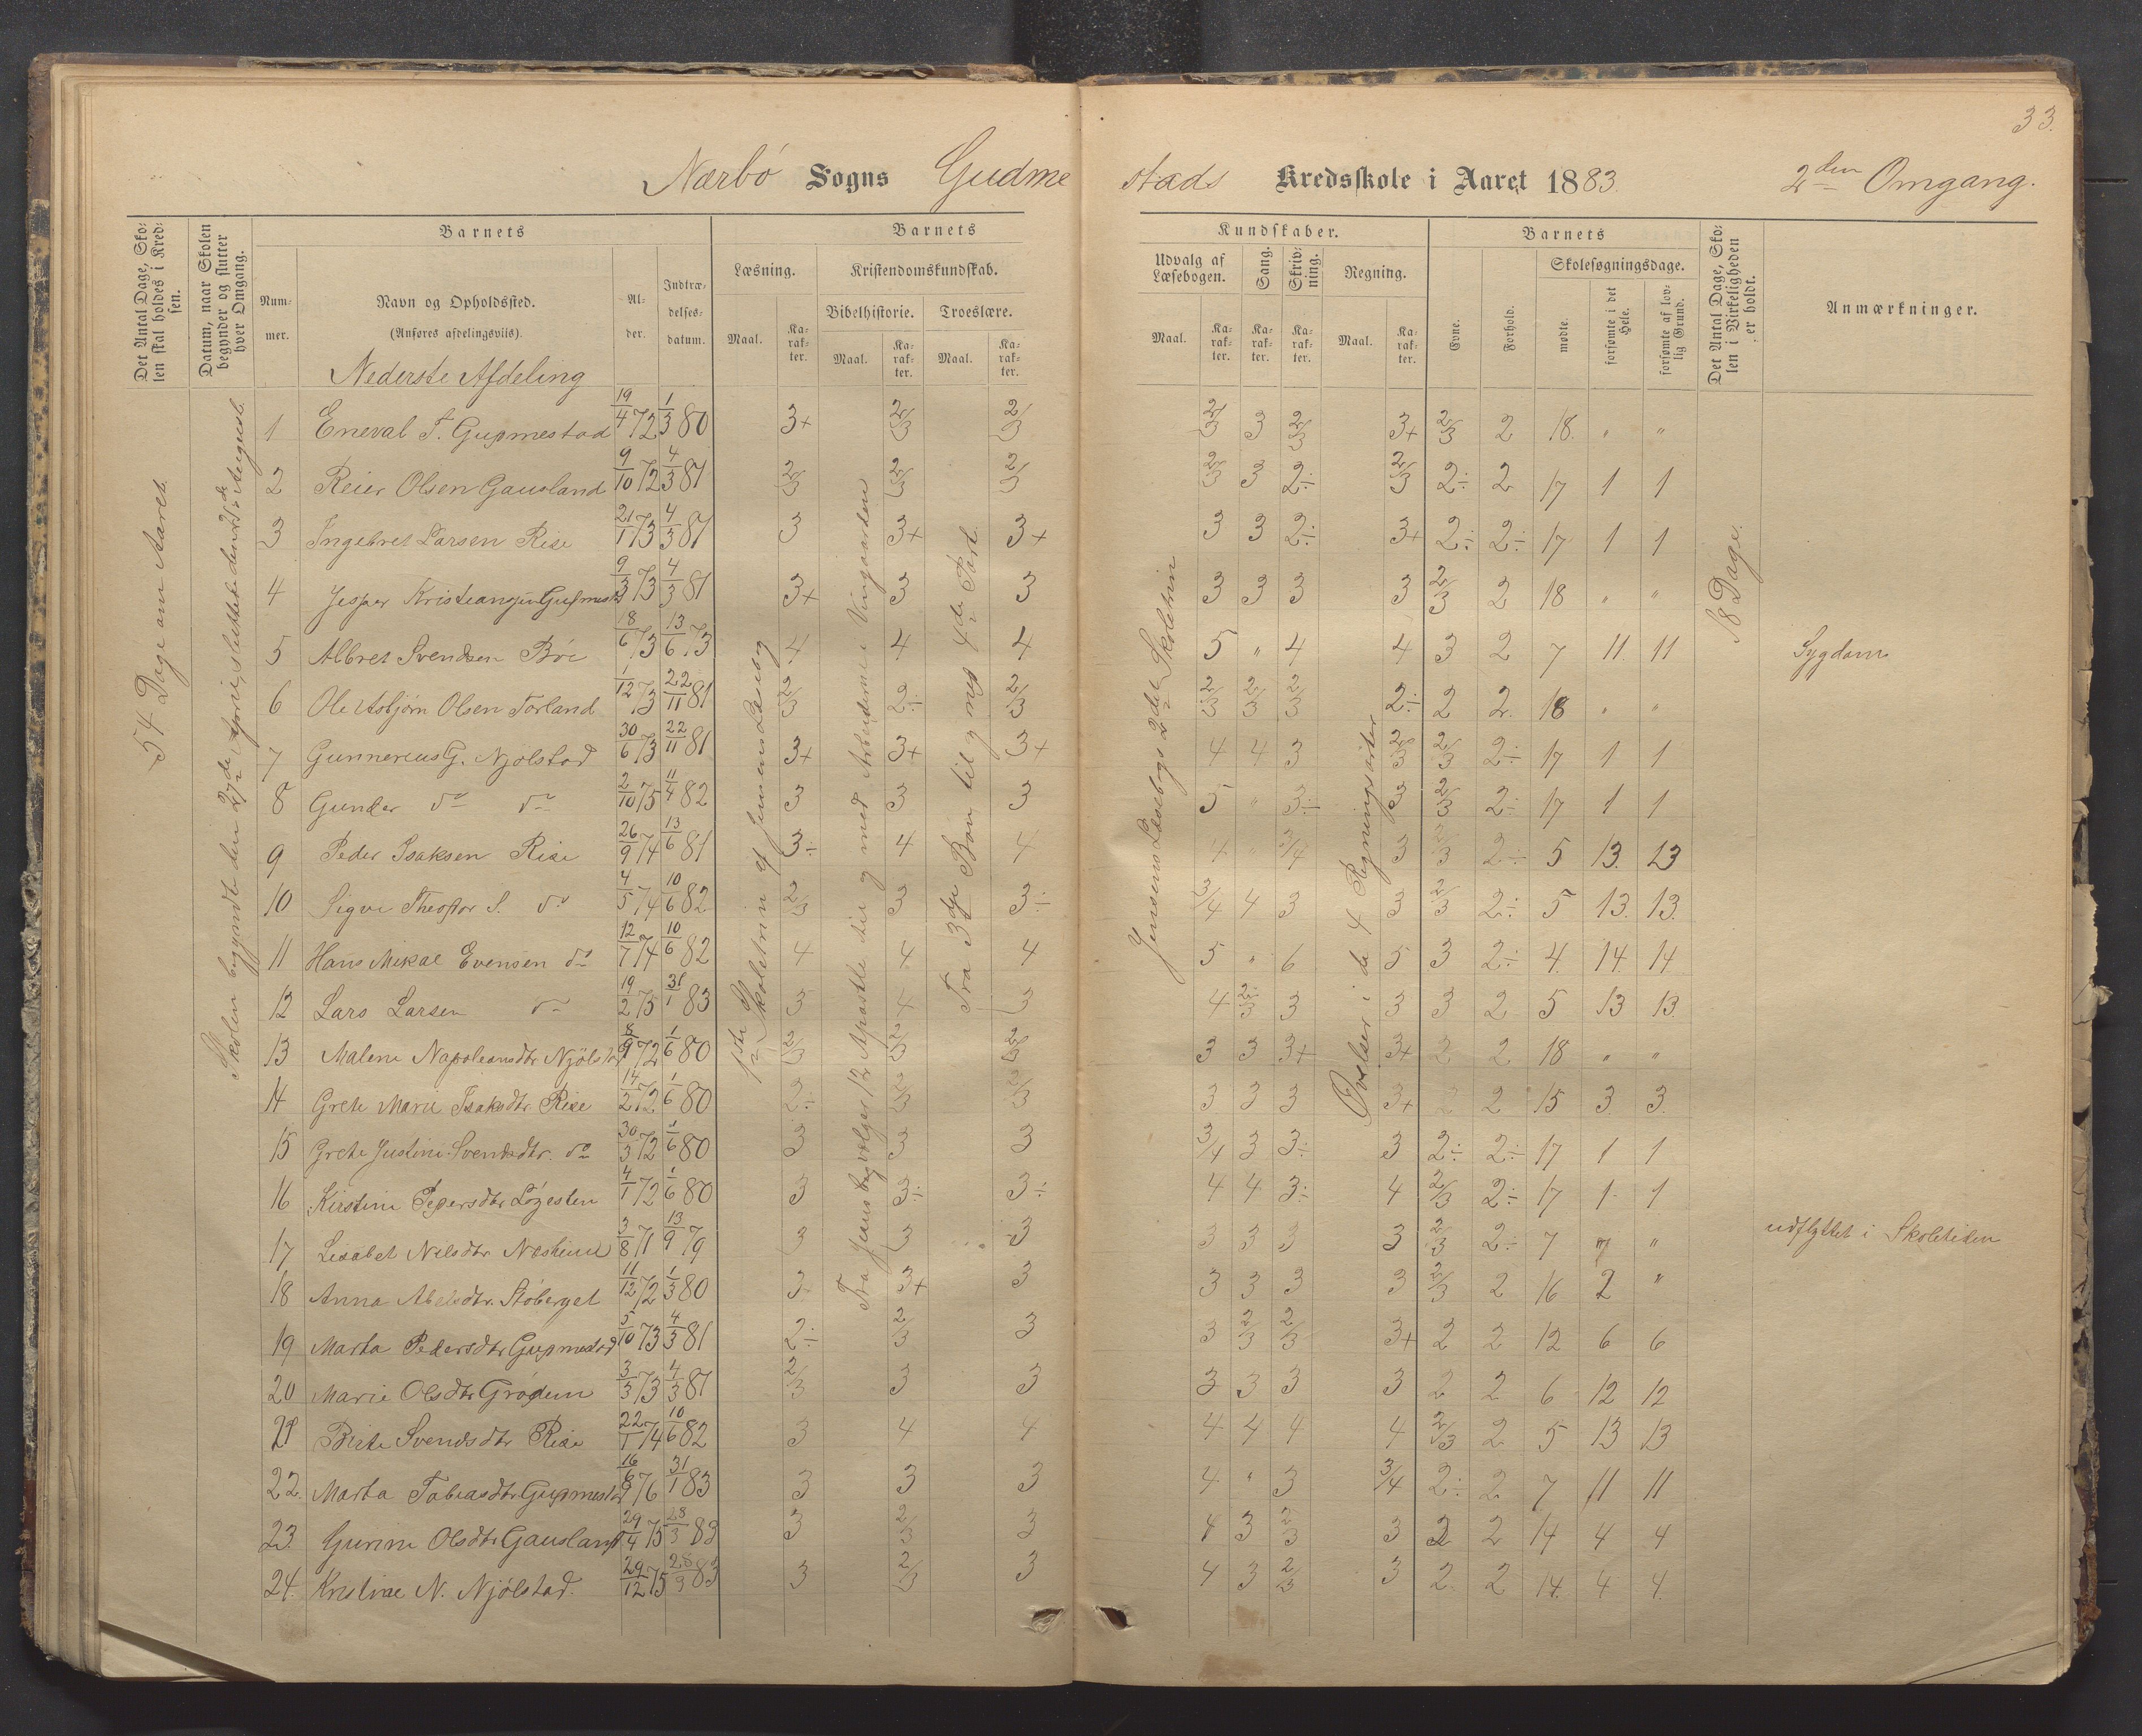 33.
Nærbö Sogns Gudmestads Kredsskole i Aaret 1883. 2den Omgang.
Det Antal Dage, Skolen skal holdes i Kredsen.
Datum, naar Skolen begynder og slutter hver Omgang.
Barnets
Nummer.
Navn og Opholdssted.
(Anføres afdelingsviis).
Alder.
Indtrædelsesdatum.
Barnets
Læsning.
Maal.
Karakter.
Kristendomskundskab.
Bibelhistorie.
Maal.
Karakter.
Troeslære.
Maal.
Karakter.
Kundskaber.
Udvalg af Læsebogen.
Maal.
Karakter.
Sang.
Karakter.
Skrivning.
Karakter.
Regning.
Maal.
Karakter.
Barnets
Evne.
Forhold.
Skolesøgningsdage.
mødte.
forsømte i det Hele.
forsømte af lovlig Grund.
Det Antal Dage, Skolen i Virkeligheden er holdt.
Anmærkninger.
54 Dage om Aaret.
Skolen begyndt den 27de April, sluttet den 25de August.
1ste Skoletrin af Jensens Læsebog
Fra Jesus udvælger 12 Apostle til og med Arbeiderne i Vingaarden
Fra 3die Bön til og med 4de Part.
Jensens Læsebogs 2det Skoletrin
Øvelser i de 4 Regningsarter
18 Dage.
Nederste Afdeling
1 Eneval T. Gudmestad 19/4 72 1/3 80 3+ 2/3 2/3 2/3 3 2/3 3+ 2/3 2 18. " "
2 Reier Olsen Gausland 9/10 72 4/3 81 2/3 2/3 2/3 2/3 3 2÷ 2/3 2÷ 2 17 1 1
3 Ingebret Larsen Rise 21/1 73 4/3 81 3 3+ 3+ 3 3 2÷ 3+ 2÷ 2÷ 17 1 1
4 Jesper Gudmestad 9/3 73 4/3 81 3+ 3 3 3 3 3 3 2/3 2 18 " "
5 Albret Svendsen Böe 18/6 73 13/6 73 4 4 4 5 " 4 4 3 2 7 11 11 Sygdom
6 Ole Asbjörn Olsen Torland 1/12 73 22/11 81 2/3 2÷ 2/3 2/3 2/3 2/3 2÷ 2 2 18 " "
7 Gunnerius G. Njölstad 30/6 73 22/11 81 3+ 3+ 3+ 4 4 3 2/3 2/3 2÷ 17 1 1
8 Gunder do do 2/10 75 11/4 82 3 3 3 5 " 3÷ 3 2/3 2÷ 17 1 1
9 Peder Isaksen Rise 26/9 74 13/6 81 3÷ 4 4 4 " 3/4 3 2/3 2÷ 5 13. 13
10 Sigve S. do 4/5 74 10/6 82 2/3 3 3÷ 3/4 4 3 3 2/3 2÷ 5 13. 13.
11 Hans Mikal Evensen do 12/7 74 10/6 82 4 4 4 5 " 6 5 3 2÷ 4. 14. 14
12 Lars Larsen do 19/2 75 31/1 83 3 4 3 4 2/3 3 3 3 2 5 13 13.
13 Malene Napoleonsdtr Njölstad 8/9 72 1/6 80 2/3 2/3 2/3 3 3 3+ 3+ 2 2 18 " "
14 Grete Marie Isaksdtr Rise 14/2 72 1/6 80 2÷ 2/3 2/3 3 3 3 3+ 2 2 15 3 3.
15 Grete Justine Svendsdtr. do 30/3 72 1/6 80 3 3 3 3/4 3 3÷ 3 2÷ 2÷ 17 1 1
16 Kirstine Pedersdtr 4/1 72 1/6 80 3 3÷ 3÷ 4 4 3÷ 4 2/3 2÷ 17 1 1
17 Lisabet Nilsdtr Næsheim 3/8 71 13/9 79 3 3 3 3 3 3 3 2/3 2÷ 7 " " udflyttet i Skoletiden
18 Anna Abelsdtr. Stöberget 11/12 72 1/3 80 3 3+ 3 3 3 3 3 2/3 2 16 2 "
19 Marta Pedersdtr Gudmestad 5/10 73 4/3 81 2÷ 2/3 3 3 2/3 2/3 3+ 2 2 12 6 6
20 Marie Olsdtr Grödem 3/3 73 4/3 81 2/3 3 3 3 3 3 3 2 2 6 12 12
21 Birte Svendsdtr Rise 22/1 74 10/6 82 3 4 4 4 4 4 4 2/3 2 5 13 13
22. Marta Tobiasdtr Gudmestad 16/6 76 31/1 83 3 3 3 4 " 3 3/4 2÷ 2 7 11 11
23. Gurine Olsdtr Gausland 29/4 75 28/3 83 3 2/3 3 4 3 2/3 3 2 2 14 4 4
24. Kristine N. Njölstad. 29/12 75 28/9 83 3 2/3 3 4 3 2/3 3 2. 2 14. 4 4.